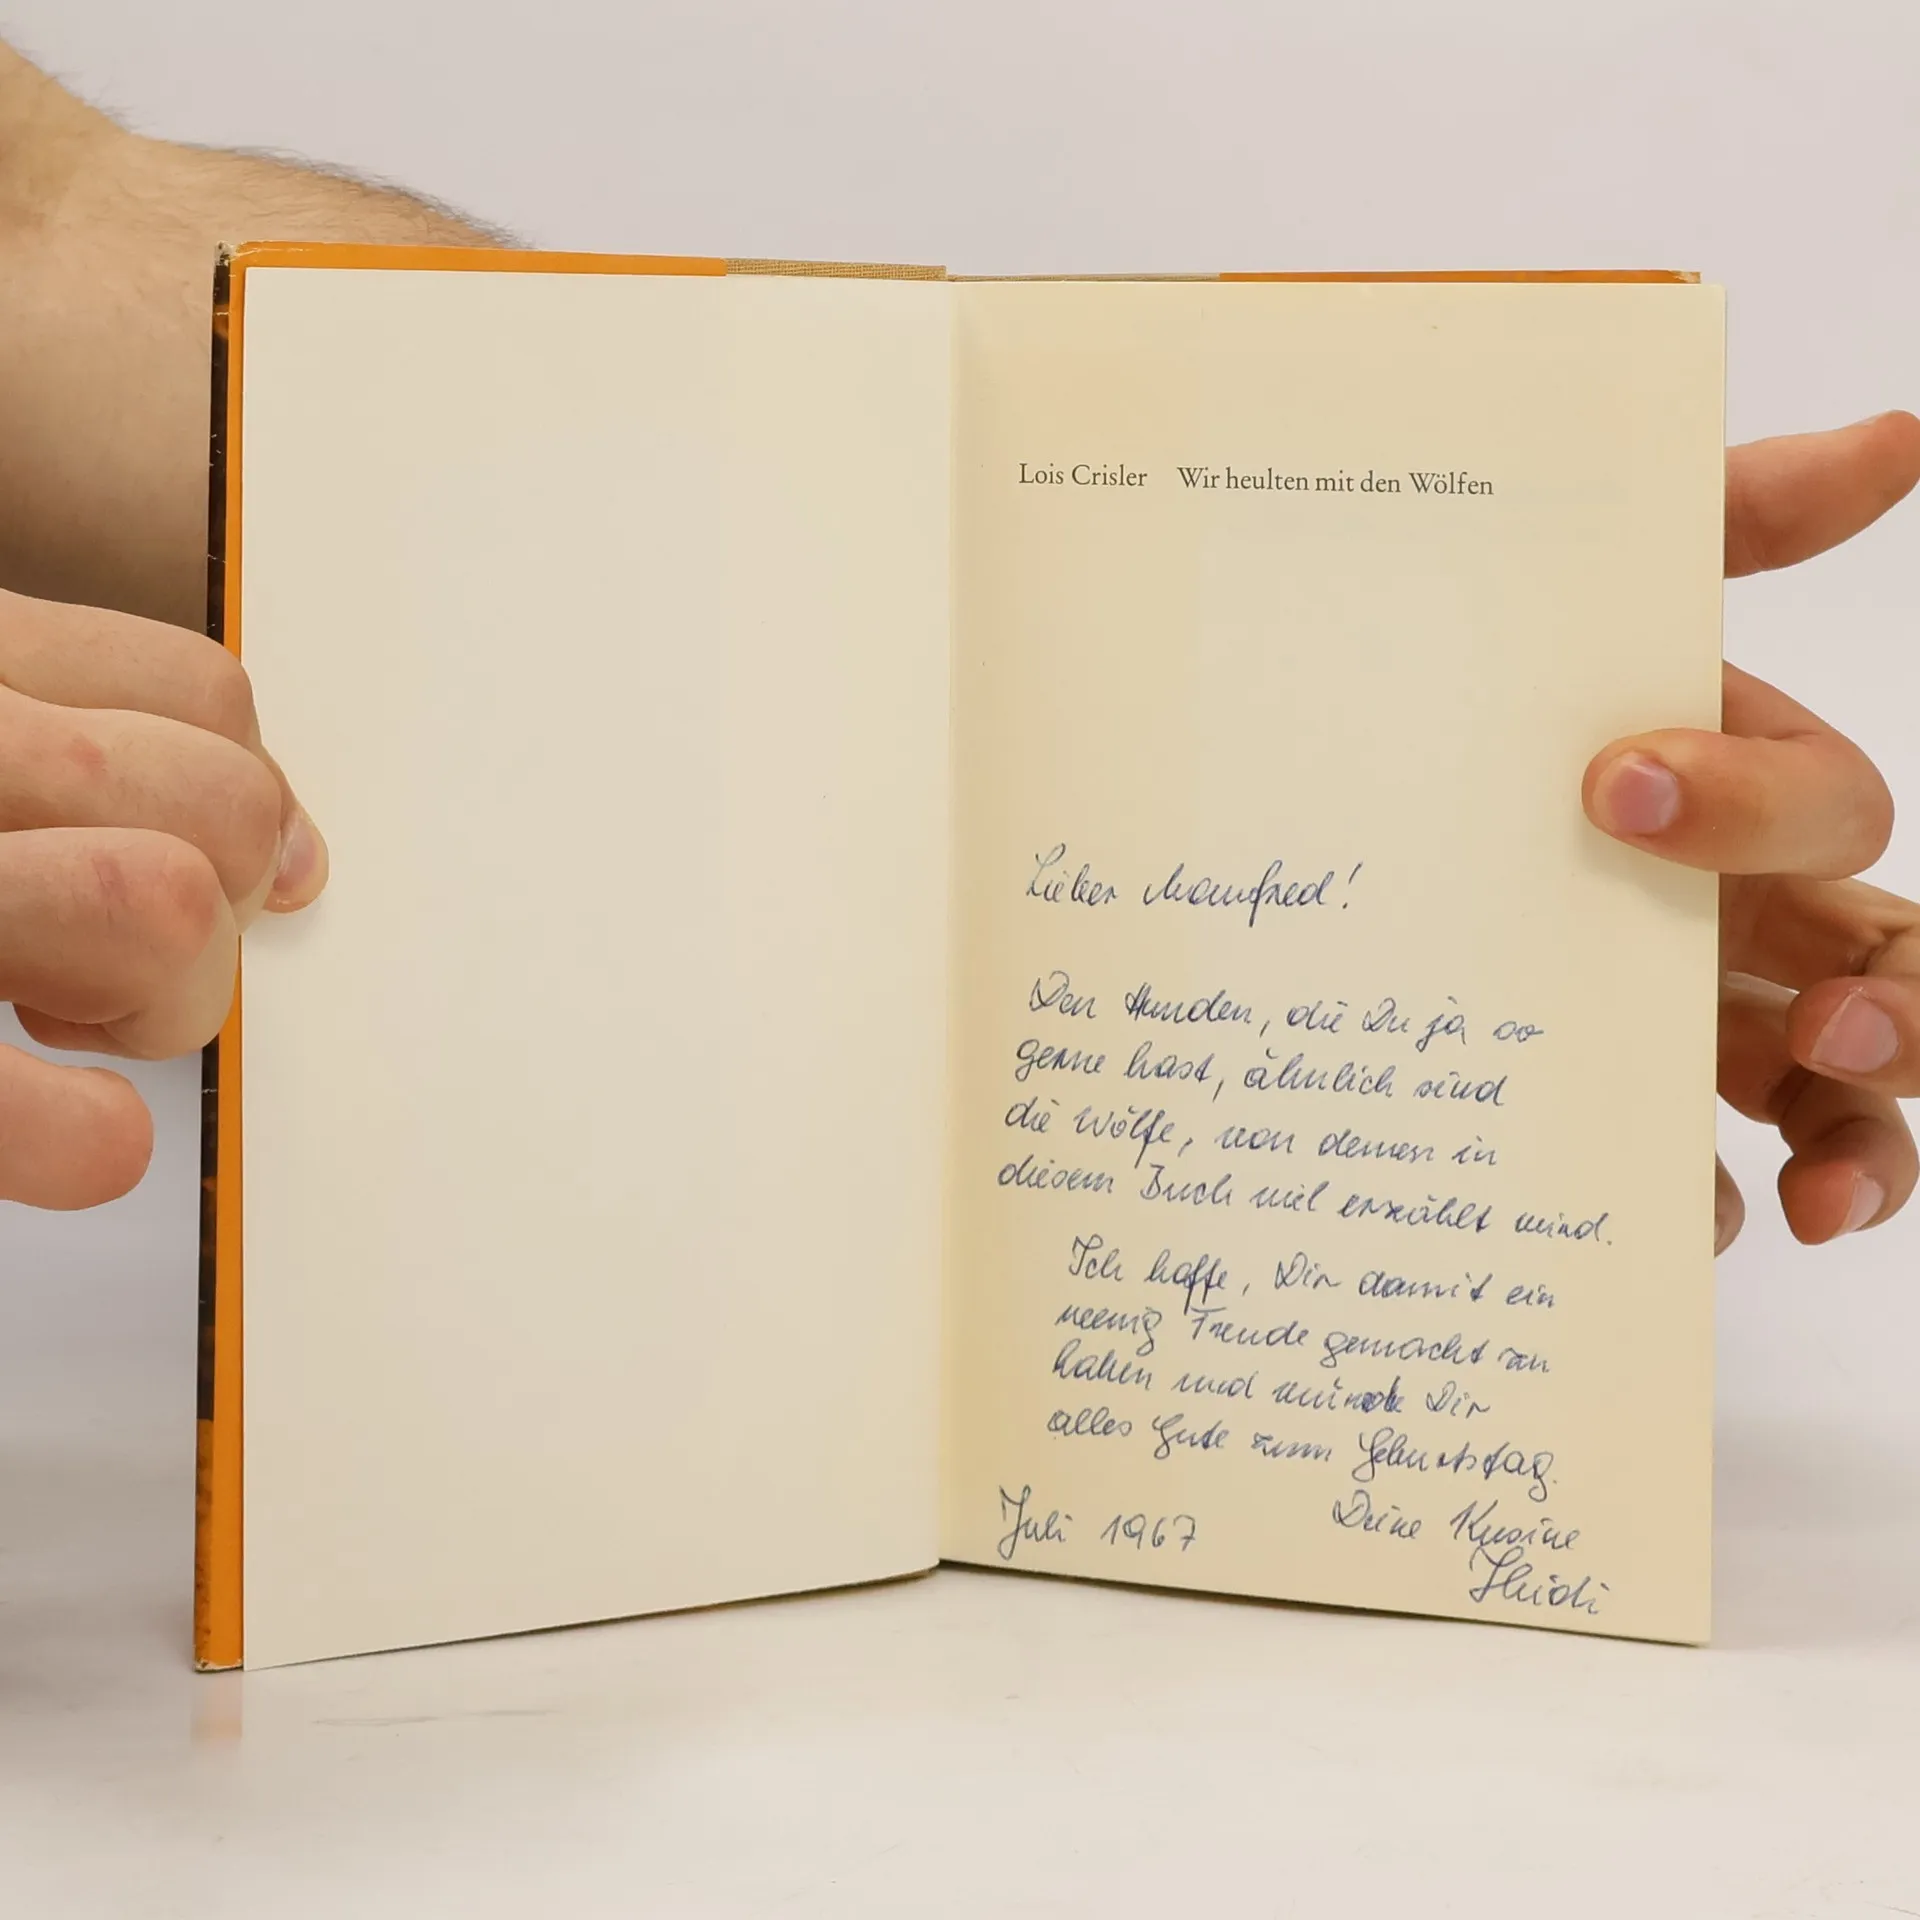 Lois Crisler Wir heulten mit den Wölfen
Lieber Manfred!
Den Hunden, die Du ja so
gerne hast, ähnlich sind
die Wölfe, von denen in
diesem Buch viel erzählt wird.
Ich hoffe, Dir damit ein
wenig Freude gemacht zu
haben und Dir
alles Gute zum Geburtstag.
Juli 1967 Deine Kusine
Heidi